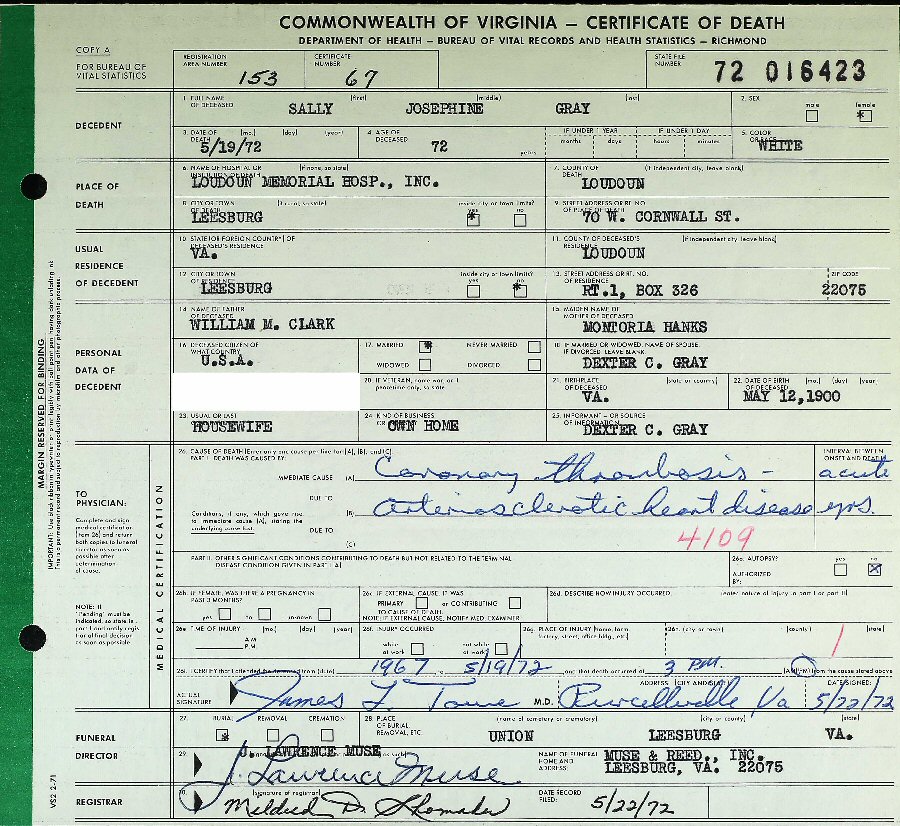 COMMONWEALTH OF VIRGINIA – CERTIFICATE OF DEATH
DEPARTMENT OF HEALTH – BUREAU OF VITAL RECORDS AND HEALTH STATISTICS – RICHMOND
COPY A
FOR BUREAU OF VITAL STATISTICS
REGISTRATION AREA NUMBER 153
CERTIFICATE NUMBER 67
STATE FILE NUMBER 72 016423
DECEDENT
1. FULL NAME OF DECEASED (first) (middle) (last)
SALLY JOSEPHINE GRAY
2. SEX male female *
3. DATE OF DEATH (mo.) (day) (year)
5/19/72
4. AGE OF DECEASED 72 years
IF UNDER 1 YEAR months days
IF UNDER 1 DAY hours minutes
5. COLOR OR RACE WHITE
PLACE OF DEATH
6. NAME OF HOSPITAL OR INSTITUTION OF DEATH (if none, so state)
LOUDOUN MEMORIAL HOSP., INC.
7. COUNTY OF DEATH (if independent city, leave blank)
LOUDOUN
8. CITY OR TOWN OF DEATH (if rural, so state) inside city or town limits? yes * no
LEESBURG
9. STREET ADDRESS OR RT. NO. OF PLACE OF DEATH
70 W. CORNWALL ST.
USUAL RESIDENCE OF DECEDENT
10. STATE (OR FOREIGN COUNTRY) OF DECEASED'S RESIDENCE
VA.
11. COUNTY OF DECEASED'S RESIDENCE (if independent city, leave blank)
LOUDOUN
12. CITY OR TOWN OF RESIDENCE inside city or town limits? yes no *
LEESBURG
13. STREET ADDRESS OR RT. NO. OF RESIDENCE ZIP CODE
RT.1, BOX 326 22075
PERSONAL DATA OF DECEDENT
14. NAME OF FATHER OF DECEASED
WILLIAM M. CLARK
15. MAIDEN NAME OF MOTHER OF DECEASED
MONTORIA HANKS
16. DECEASED CITIZEN OF WHAT COUNTRY
U.S.A.
17. MARRIED * NEVER MARRIED
WIDOWED DIVORCED
18. IF MARRIED OR WIDOWED, NAME OF SPOUSE. IF DIVORCED LEAVE BLANK
DEXTER C. GRAY
20. IF VETERAN, name war, or if peacetime only, so state
21. BIRTHPLACE OF DECEASED (state or country)
VA.
22. DATE OF BIRTH OF DECEASED (mo.) (day) (year)
MAY 12,1900
23. USUAL OR LAST
HOUSEWIFE
24. KIND OF BUSINESS OR
OWN HOME
25. INFORMANT – OR SOURCE OF INFORMATION
DEXTER C. GRAY
MARGIN RESERVED FOR BINDING
MEDICAL CERTIFICATION
TO PHYSICIAN:
Complete and sign medical certification (Item 26) and return both copies to funeral director as soon as possible after determination of cause.
NOTE: If "Pending" must be indicated, so state in part I and notify registrar of final decision as soon as possible.
26. CAUSE OF DEATH (Enter only one cause per line for (A), (B), and (C).)
PART I. DEATH WAS CAUSED BY:
INTERVAL BETWEEN ONSET AND DEATH
IMMEDIATE CAUSE (A) Coronary thrombosis – acute
DUE TO
(B) Arteriosclerotic heart disease yrs.
Conditions, if any, which gave rise to immediate cause (A), stating the underlying cause last.
DUE TO
(C)
4109
PART II. OTHER SIGNIFICANT CONDITIONS CONTRIBUTING TO DEATH BUT NOT RELATED TO THE TERMINAL DISEASE CONDITION GIVEN IN PART I(A)
26a. AUTOPSY? yes no X
AUTHORIZED BY:
26b. IF FEMALE, WAS THERE A PREGNANCY IN PAST 3 MONTHS?
yes no unknown
26c. IF EXTERNAL CAUSE, IT WAS
PRIMARY or CONTRIBUTING
TO CAUSE OF DEATH.
NOTE: IF EXTERNAL CAUSE, NOTIFY MED EXAMINER
26d. DESCRIBE HOW INJURY OCCURRED (enter nature of injury in part I or part II)
26e. TIME OF INJURY (mo.) (day) (year)
A.M.
P.M.
26f. INJURY OCCURRED
while at work not while at work
26g. PLACE OF INJURY (home, farm, factory, street, office bldg., etc.)
26h. (city or town) (county) (state)
26i. I CERTIFY that I attended the deceased from (date) 1967 to 5/19/72 and that death occurred at 3 PM. (AM)(PM) from the cause stated above
ACTUAL SIGNATURE James L Towne M.D.
ADDRESS (CITY AND STATE) Purcellville Va
DATE SIGNED: 5/22/72
FUNERAL DIRECTOR
27. BURIAL * REMOVAL CREMATION
28. PLACE OF BURIAL, REMOVAL, ETC. (name of cemetery or crematory) (city or county) (state)
UNION LEESBURG VA.
29. J. LAWRENCE MUSE
J. Lawrence Muse
NAME OF FUNERAL HOME AND ADDRESS:
MUSE & REED., INC.
LEESBURG, VA. 22075
REGISTRAR
30. (signature of registrar)
Mildred D. Shomaker
DATE RECORD FILED: 5/22/72
VS2 2-71